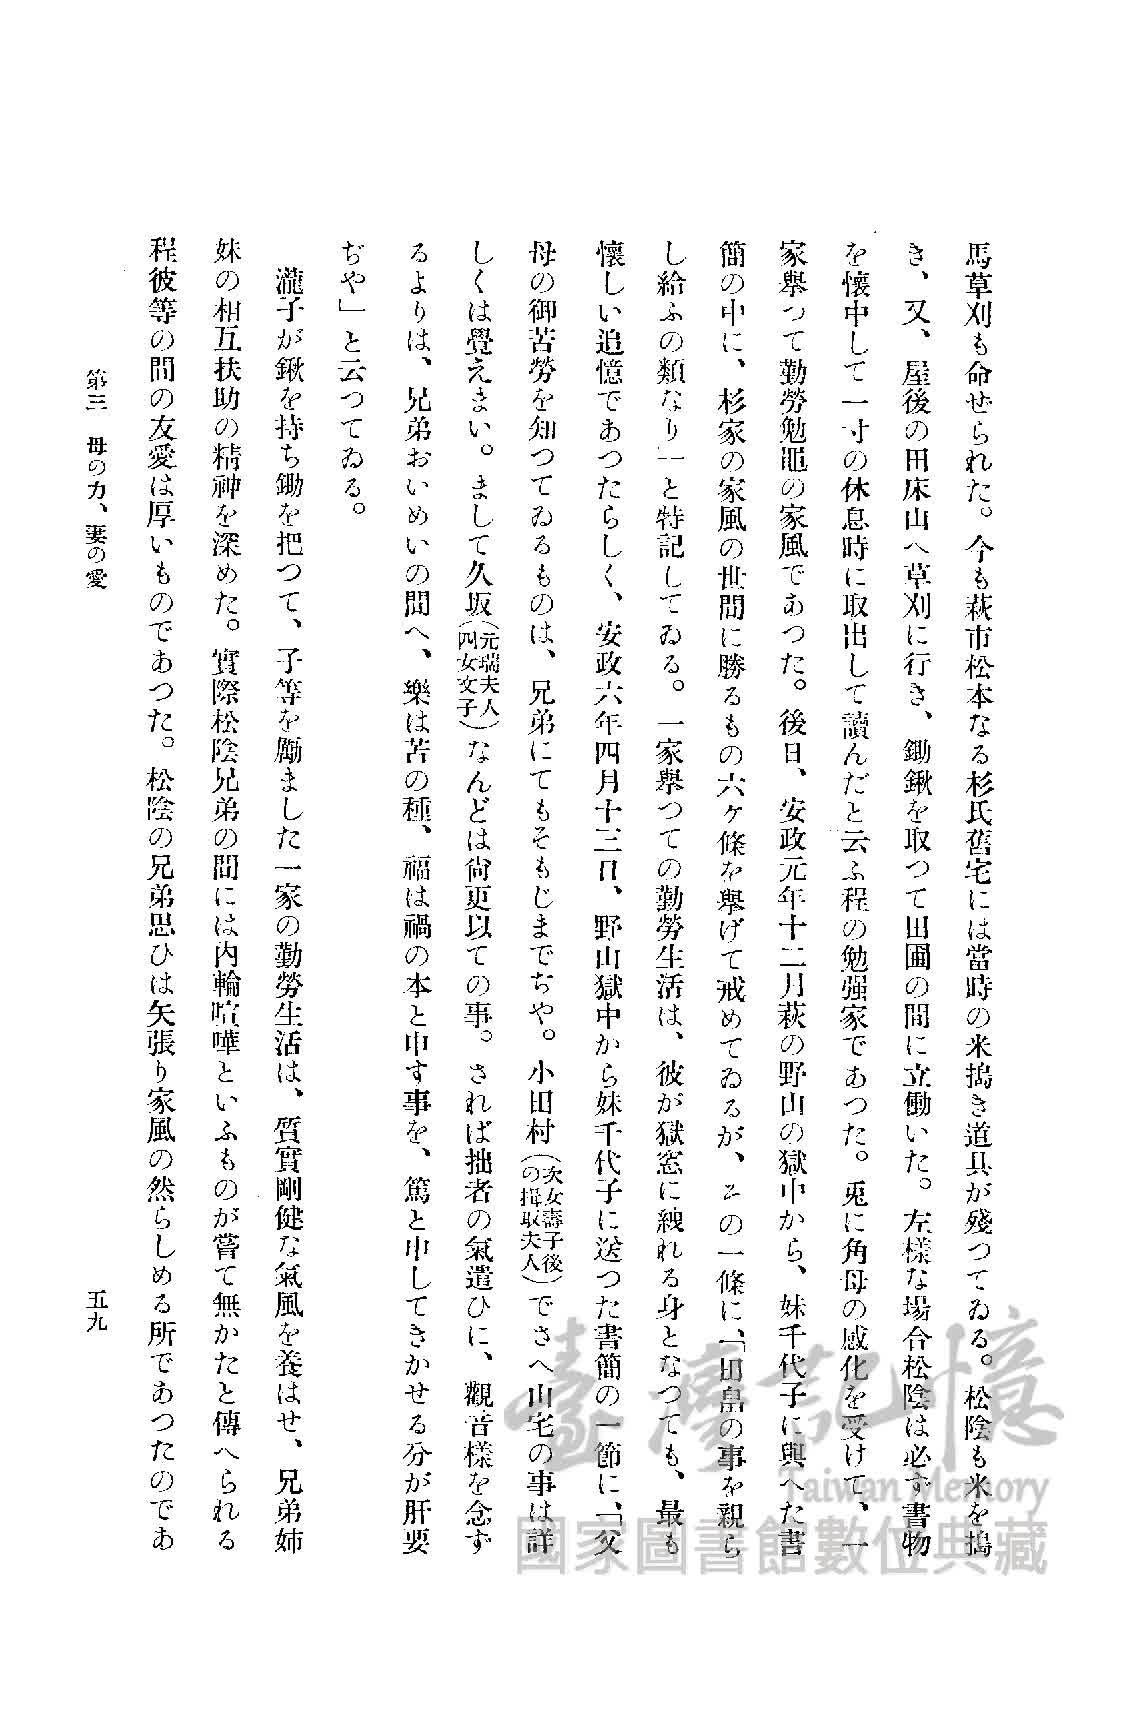 馬草刈も命せられた。今も萩市松本なる杉氏舊宅には當時の米搗き道具が殘つてゐる。松陰も米を搗
き、又、屋後の田床山へ草刈に行き、鋤鍬を取つて田圃の間に立働いた。左樣な場合松陰は必ず書物
を懷中して一寸の休息時に取出して讀んだと云ふ程の勉强家であつた。兎に角母の感化を受けて、一
家擧つて勤勞勉黽の家風であつた。後日、安政元年十二月萩の野山の獄中から、妹千代子に與へた書
簡の中に、杉家の家風の世間に勝るもの六ケ條を擧げて戒めてゐるが、その一條に、「田畠の事を親ら
し給ふの類なり」と特記してゐる。一家擧つての勤勞生活は、彼が獄窓に繞れる身となつても、最も
懷しい追憶であつたらしく、安政六年四月十三日、野山獄中から妹千代子に送つた書簡の一節に、「父
母の御苦勞を知つてゐるものは、兄弟にてもそもじまでぢや。小田村(次女壽子後の揖取夫人)でさへ山宅の事は詳
しくは覺えまい。まして久坂(元瑞夫人四女文子)なんどは尙更以ての事。されば拙者の氣遣ひに、觀音樣を念ず
るよりは、兄弟おいめいの間へ、樂は苦の種、福は禍の本と申す事を、篤と申してきかせる分が肝要
ぢや」と云つてゐる。
瀧子が鍬を持ち鋤を把つて、子等を勵ました一家の勤勞生活は、質實剛健な氣風を養はせ、兄弟姉
妹の相互扶助の精神を深めた。實際松陰兄弟の間には內輪喧嘩といふものが嘗て無かたと傳へられる
程彼等の間の友愛は厚いものであつた。松陰の兄弟思ひは矢張り家風の然らしめる所であつたのであ
第三 母の力、妻の愛
五九
臺灣記憶
Taiwan Memory
國家圖書館數位典藏